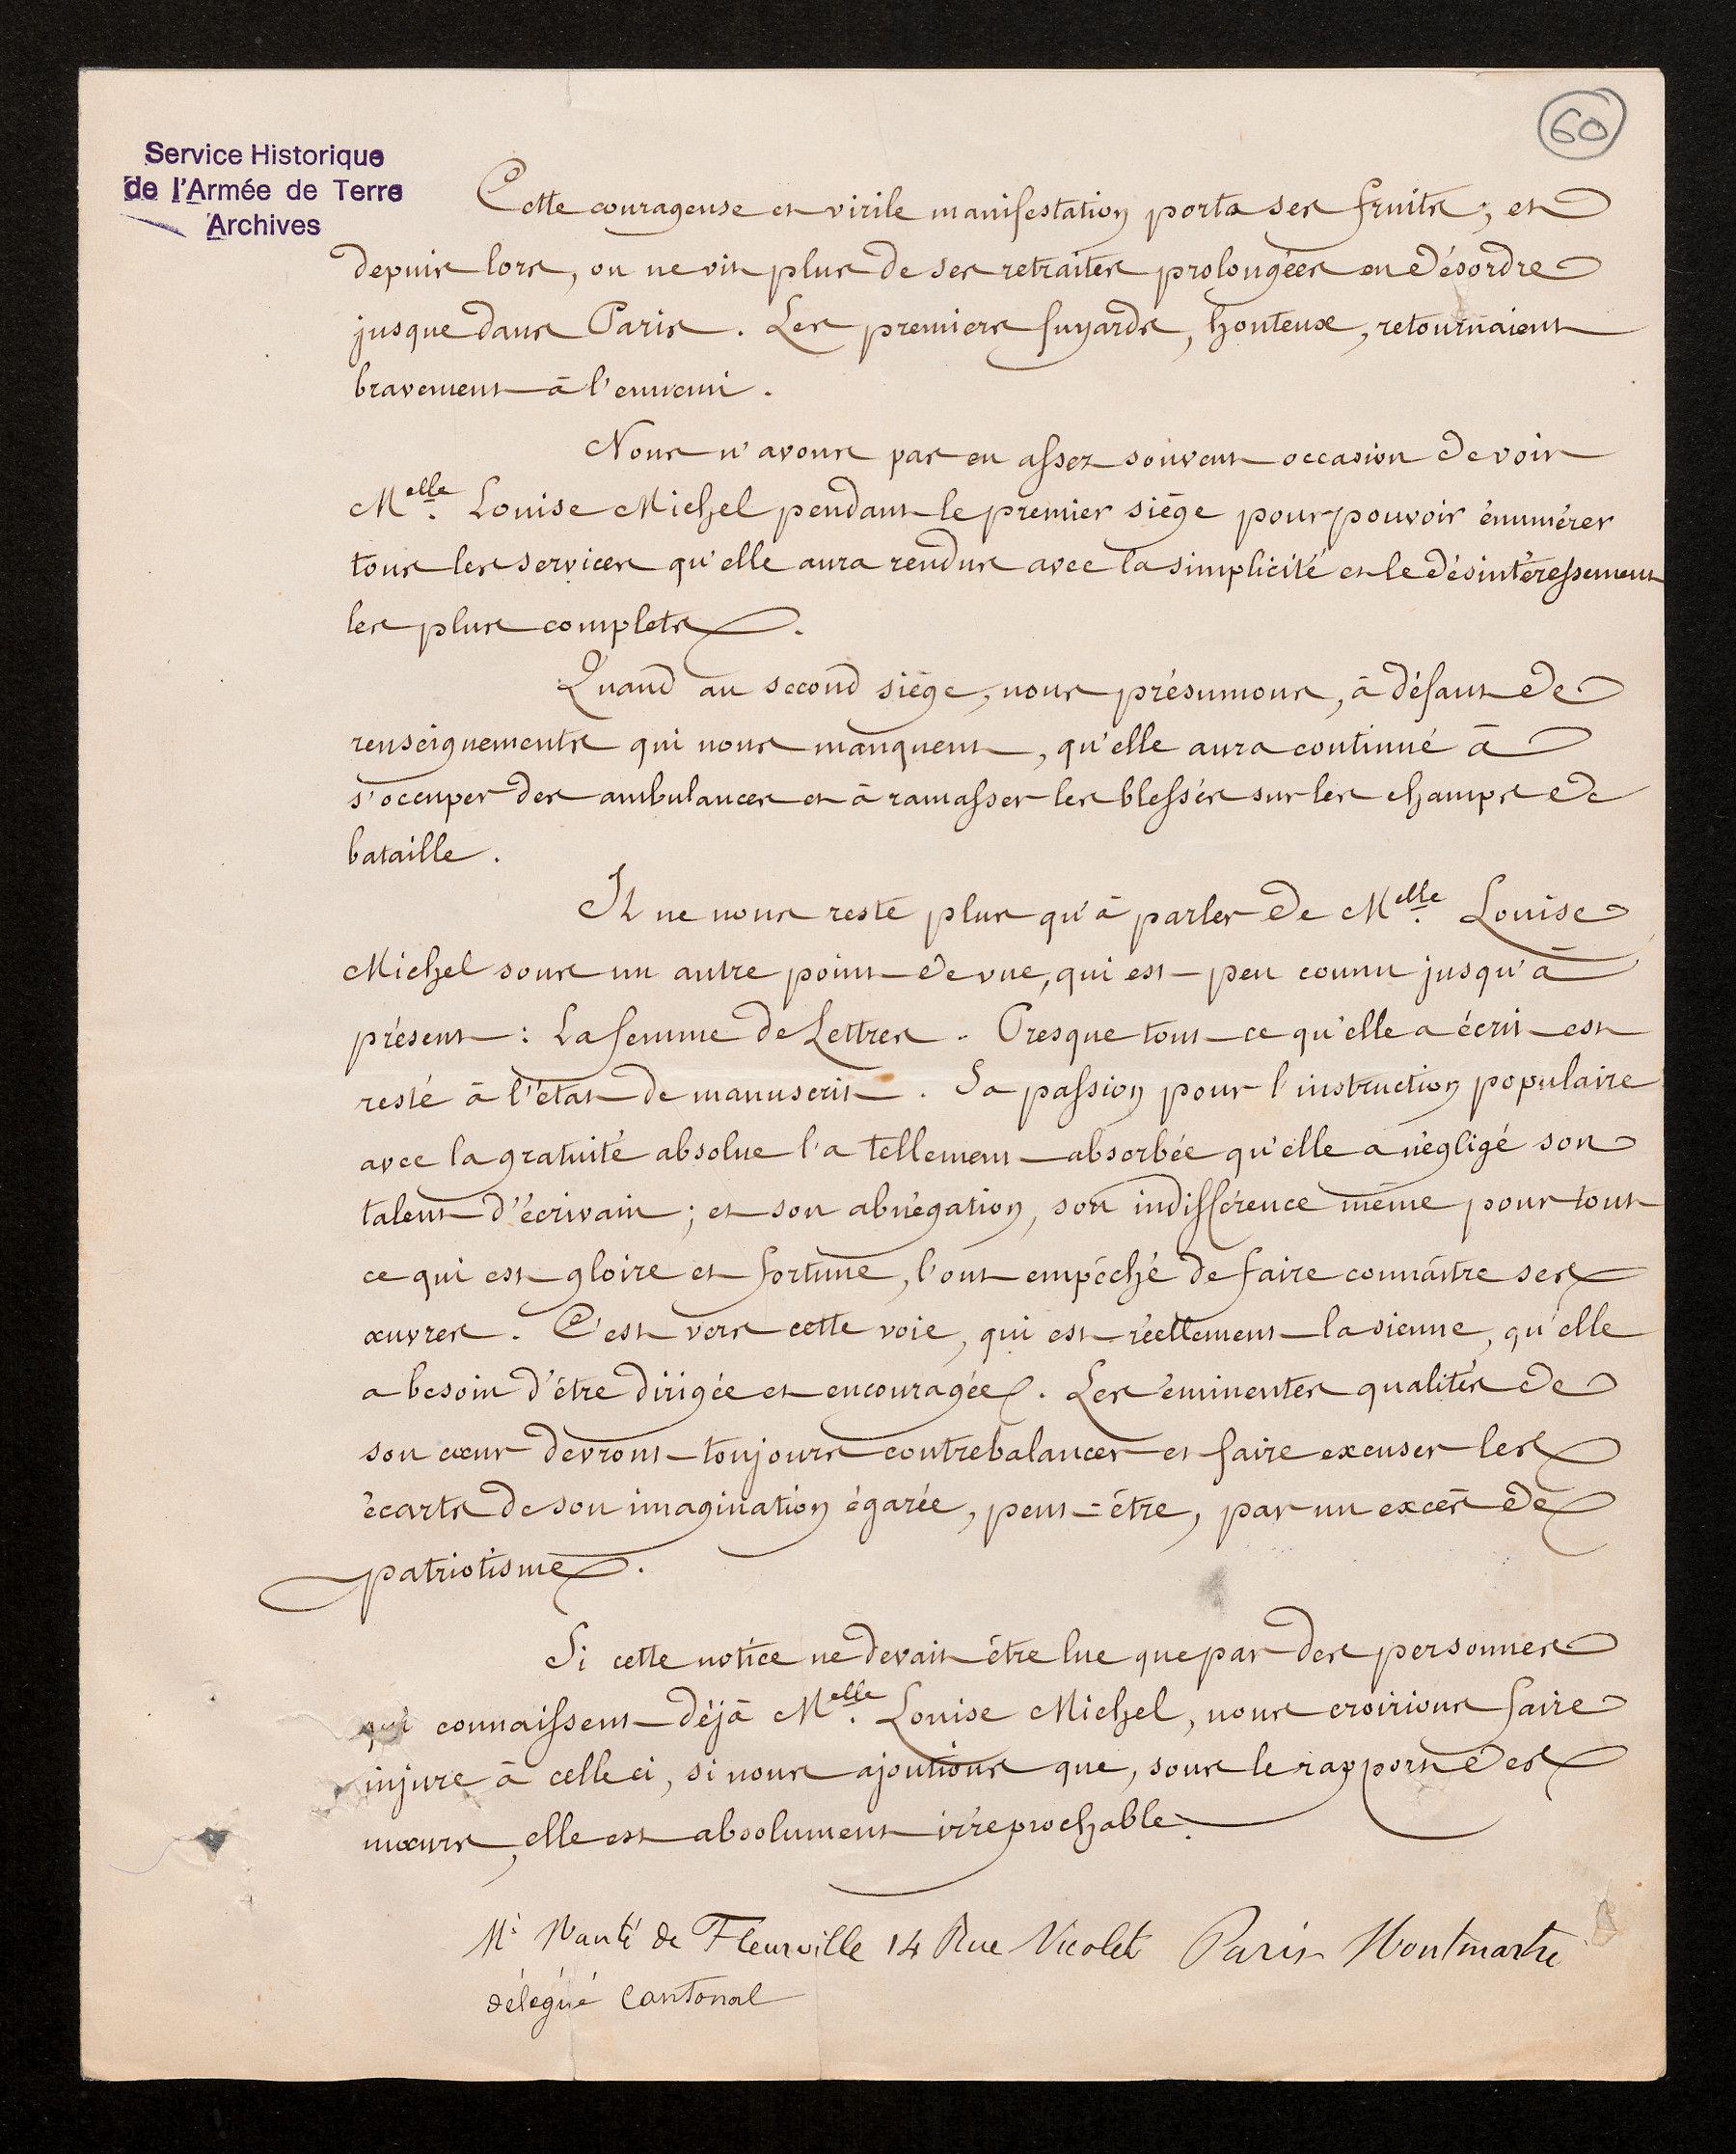 60
Service Historique
de l'Armée de Terre
Archives
Cette courageuse et virile manifestation porta ses fruits; et
depuis lors, on ne vit plus de ses retraites prolongées en désordre
jusque dans Paris. Les premiers fuyards, honteux, retournaient
bravement à l'ennemi.
Nous n'avons pas eu assez souvent occasion de voir
Melle. Louise Michel pendant le premier siège pour pouvoir énumérer
tous les services qu'elle aura rendus avec la simplicité et le désintéressement
les plus complets.
Quand au second siège, nous présumons, à défaut de
renseignements qui nous manquent, qu'elle aura continué à
s'occuper des ambulances et à ramasser les blessés sur les champs de
bataille.
Il ne nous reste plus qu'à parler de Melle. Louise
Michel sous un autre point de vue, qui est peu connu jusqu'à
présent : La femme de Lettres. Presque tout ce qu'elle a écrit est
resté à l'état de manuscrit. Sa passion pour l'instruction populaire
avec la gratuité absolue l'a tellement absorbée qu'elle a négligé son
talent d'écrivain; et son abnégation, son indifférence même pour tout
ce qui est gloire et fortune, l'ont empêché de faire connaître ses
œuvres. C'est vers cette voie, qui est réellement la sienne, qu'elle
a besoin d'être dirigée et encouragée. Les éminentes qualités de
son cœur devront toujours contrebalancer et faire excuser les
écarts de son imagination égarée, peut-être, par un excès de
patriotisme.
Si cette notice ne devait être lue que par des personnes
qui connaissent déjà Melle. Louise Michel, nous croirions faire
injure à celle ci, si nous ajoutions que, sous le rapport des
mœurs, elle est absolument irréprochable.
Mauté de Fleurville 14 Rue Nicolet Paris Montmartre
délégué Cantonal